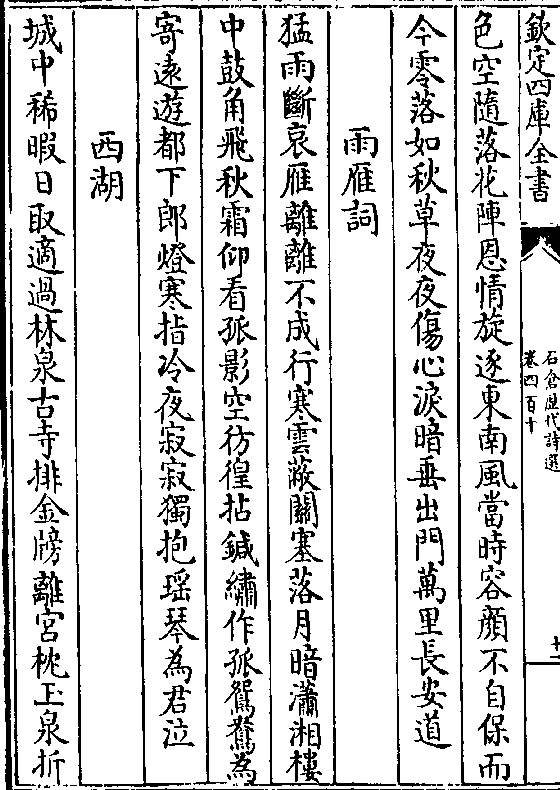 欽定四庫全書
石倉歷代詩選
卷四百十
十一
色空隨落花陣恩情旋逐東南風當時容顔不自保而
今零落如秋草夜夜傷心淚暗垂出門萬里長安道
雨雁詞
猛雨斷哀雁離離不成行寒雲蔽關塞落月暗瀟湘樓
中鼓角飛秋霜仰看孤影空彷徨拈鍼繡作孤鴛鴦為
寄遠遊都下郎燈寒指冷夜寂寂獨抱瑶琴為君泣
西湖
城中稀暇日取適過林泉古寺排金牓離宮枕玉泉折